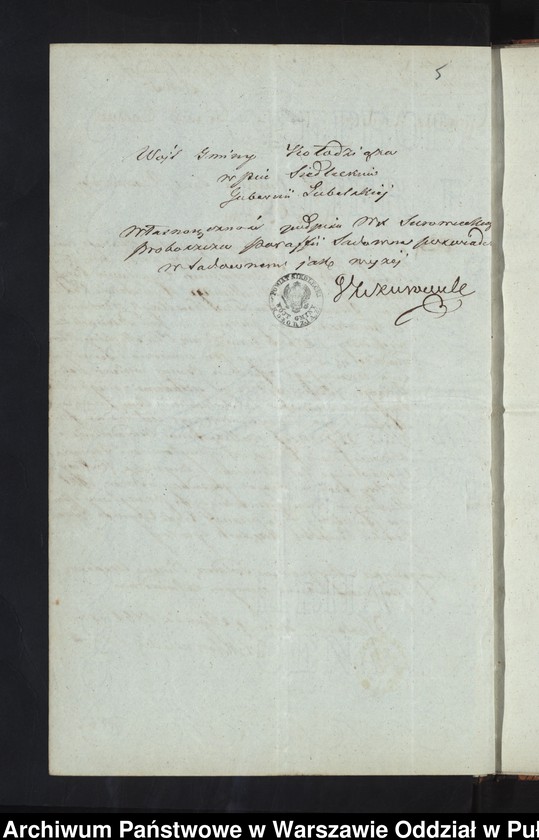 5
Wójt Gminy Kołodziąża
w pcie Siedleckim
Gubernii Lubelskiej
Własnoręczność podpisu WX Surowieckiego
Proboszcza Parafii Sadowne poświadcza
w Sadownem jak wyżej
POWIAT SIEDLECKI
WÓJT GMINY
Archiwum Państwowe w Warszawie Oddział w Puł